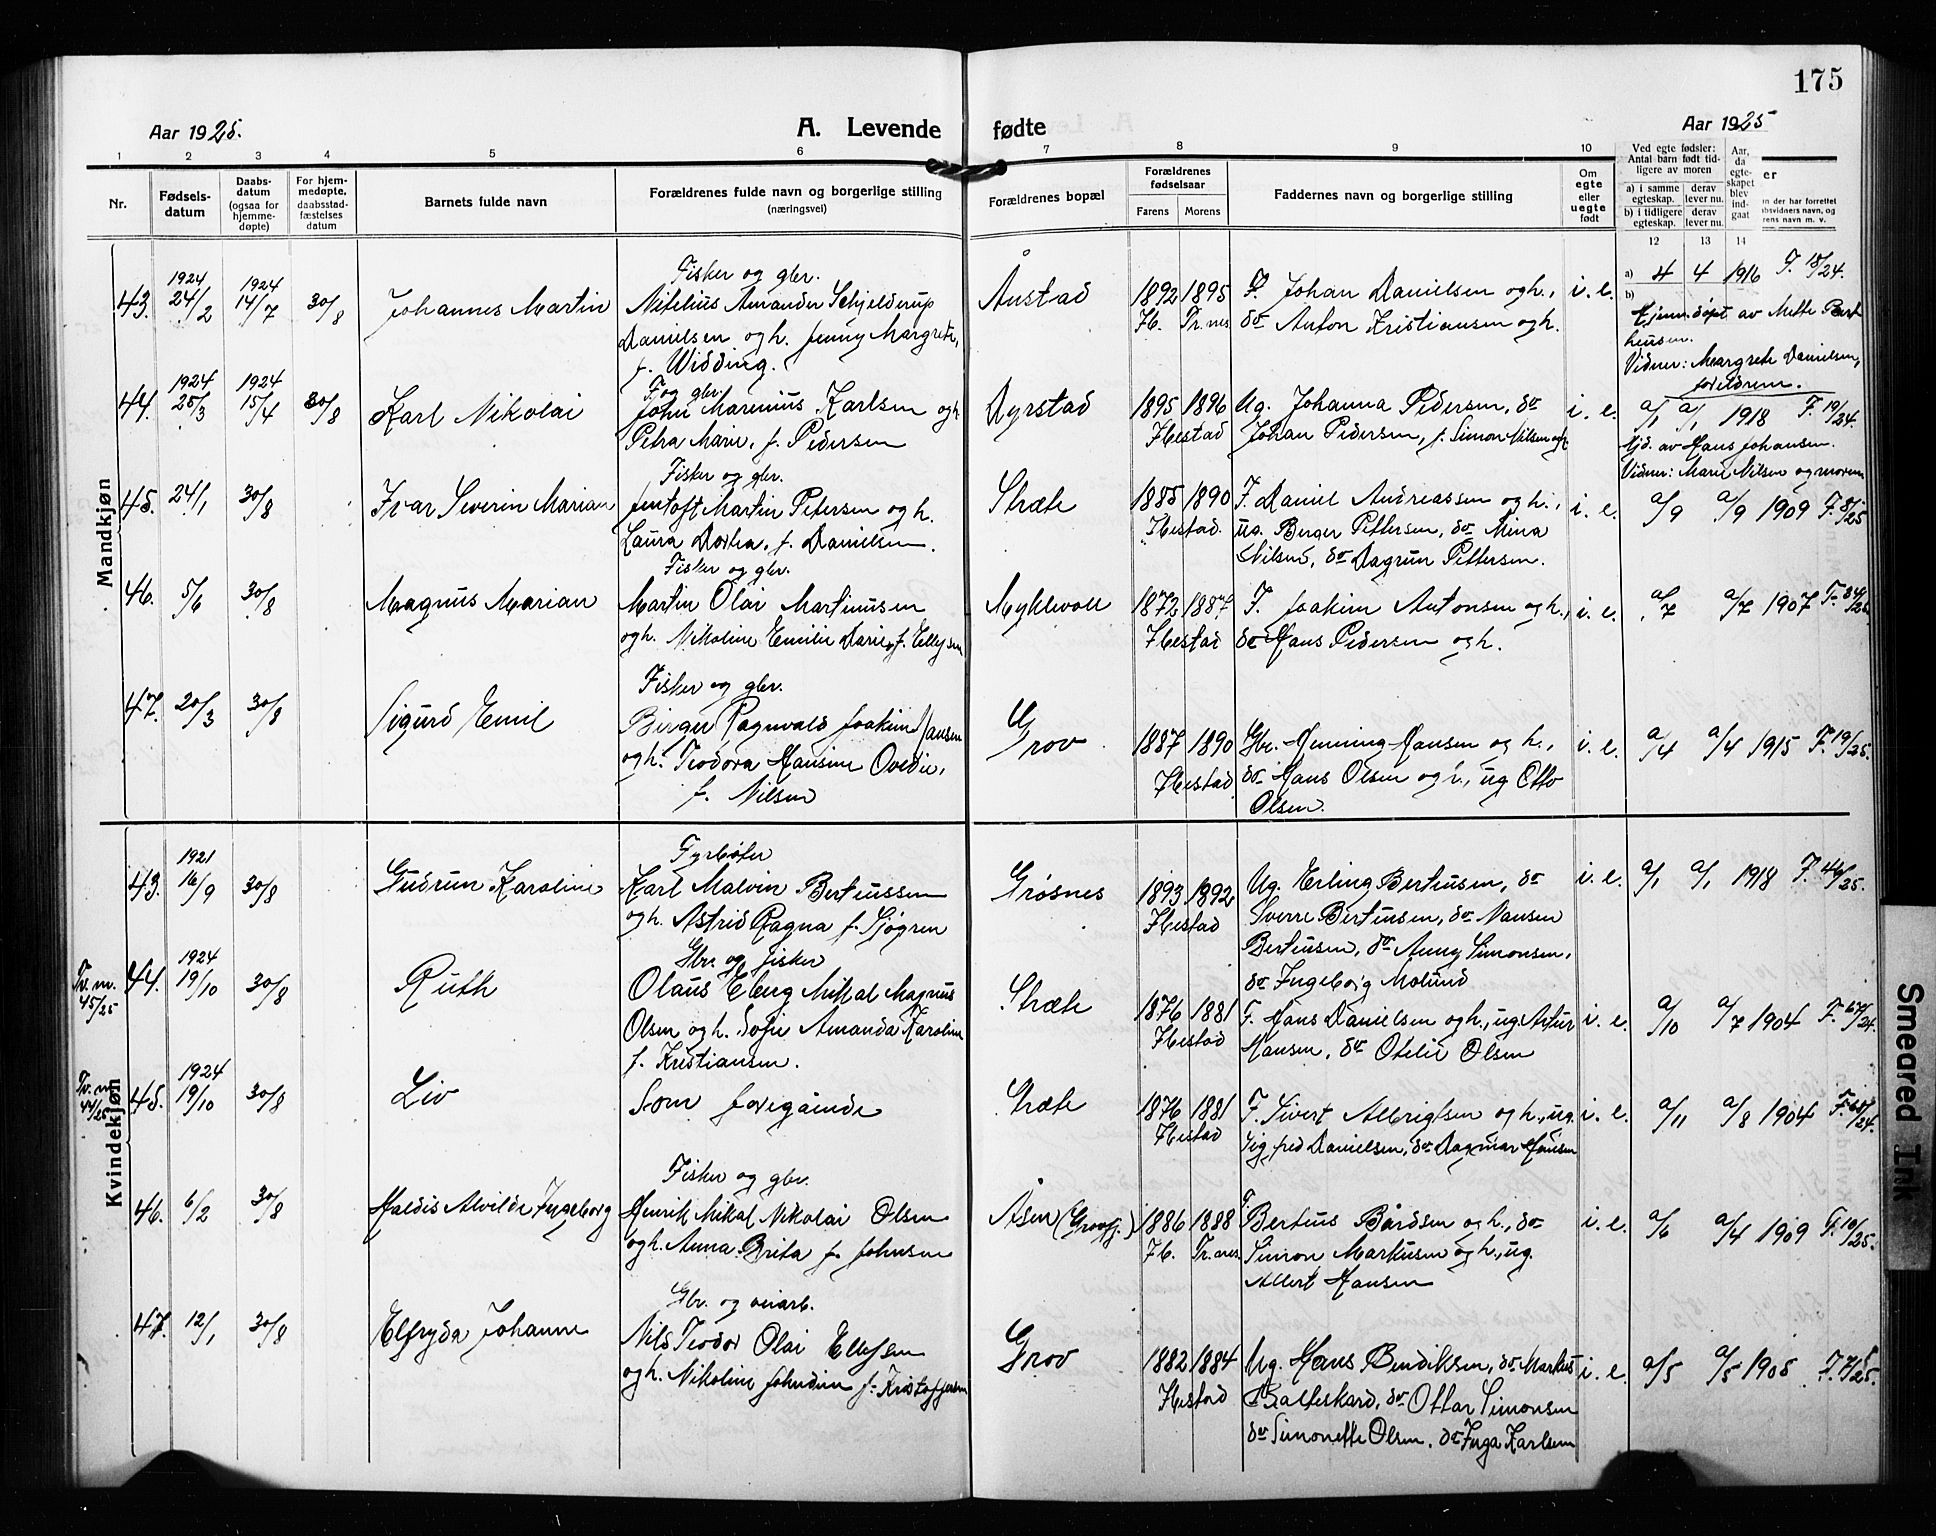 175
Aar 1925.
A. Levende fødte
Aar 1925
1 2 3 4 5 6 7 8 9 10
Nr.
Fødsels-
datum
Daabs-
datum
(ogsaa for
hjemme-
døpte)
For hjem-
medøpte,
daabsstad-
fæstelses
datum
Barnets fulde navn
Forældrenes fulde navn og borgerlige stilling
(næringsvei)
Forældrenes bopæl
Forældrenes
fødselsaar
Farens Morens
Faddernes navn og borgerlige stilling
Om
egte
eller
uegte
født
Ved egte fødsler:
Antal barn født tid-
ligere av moren
a) i samme
egteskap.
derav
lever nu.
b) i tidligere
egteskap.
derav
lever nu.
Aar,
da
egte-
skapet
blev
ind-
gaat
12 13 14
er
n der har forrettet
absvidners navn, og
rens navn m. v.
Mandkjøn
43.
1924
24/2
1924
14/7
30/8
Johannes Martin
Fisker og gbr.
Nikelius Amandus Schjelderup
Danielsen og h. Jenny Margrete,
f. Widding.
Åustad
1892 1895
H. Tr.nes
F. Johan Danielsen og h.,
do Anton Kristiansen og h.
i. e.
a) 4 4 1916 F. 18/24.
b)
Hjemmedøpt av Mette Bert
heusen.
Vidner: Margrete Danielsen,
foreldrene.
44.
1924
25/3
1924
15/4
30/8
Karl Nikolai
F. og gbr.
John Marenius Karlsen og h
Petra Marie, f. Pedersen
Dyrstad
1895 1896
Ibestad
Ug. Johanna Pedersen, do
Johan Pedersen, f. Simon Nilsen og h
i. e.
a/1 a/1 1918 F. 19/24.
Hjd. av Hans Johansen.
Vidner: Marie Nilsen og moren
45.
24/1
30/8
Ivar Severin Marian
Fisker og gbr.
Jentoft Martin Petersen og h.
Laura Dortea, f. Danielsen.
Stræte
1885 1890
Ibestad.
F. Daniel Andreassen og h.,
ug. Birger Pettersen, do Mina
Nilsen, do Dagrun Pettersen.
i. e.
a/9 a/9 1909 F. 8/25
46.
5/6
30/8
Magnus Marian
Fisker og gbr.
Martin Olai Martinusen
og h. Nikoline Emilie Marie, f. Ellefsen
Myklevoll
1872 1887
Ibestad
F. Joakim Antonsen og h.,
do Hans Pedersen og h.
i. e.
a/7 a/7 1907 F. 34/25
47.
20/3
30/8
Sigurd Emil
Fisker og gbr.
Birger Ragnvald Joakim Hansen
og h. Teodora Hansine Ovedie,
f. Nilsen
Grov
1887 1890
Ibestad
Gbr. Henning Hansen og h.,
do Hans Olsen og h., ug Otto
Olsen.
i. e.
a/4 a/4 1915 F. 19/25.
Kvindekjøn
43.
1921
16/9
30/8
Gudrun Karoline
Fyrbøter
Karl Malvin Bertiussen
og h. Astrid Ragna f. Sjøgren
Grøsnes
1893 1892
Ibestad
Ug. Erling Bertiusen, do
Sverre Bertiusen, do Nansen
Bertiusen, do Anny Simonsen,
do Ingeborg Molund
i. e.
a/1 a/1 1918 F. 46/25.
Tv. m.
45/25
44.
1924
19/10
30/8
Ruth
Gbr. og fisker
Olaus Eberg Mikal Magnus
Olsen og h. Sofie Amanda Karoline
f. Kristiansen.
Stræte
1876 1881
Ibestad
F. Hans Danielsen og h., ug. Artur
Hansen, do Otelie Olsen
i. e.
a/10 a/7 1904 F. 67/24.
Tv. m.
44/25
45.
1924
19/10
30/8
Liv
Som foregående
Stræte
1876 1881
Ibestad
F. Sivert Albrigtsen og h., ug.
Sigfred Danielsen, do Dagmar Hansen
i. e.
a/11 a/8 1904 F. 68/24.
46.
6/2
30/8
Haldis Alvilde Ingeborg
Fisker og gbr.
Henrik Mikal Nikolai Olsen
og h. Anna Brita f. Johnsen
Åsen (Grovfj.)
1886 1888
H. Tr.nes
F. Bertius Bårdsen og h., do
Simon Markusen og h., ug.
Albert Hansen
i. e.
a/6 a/4 1909 F. 10/25.
47.
12/1
30/8
Elfryda Johanne
Gbr. og veiarb.
Nils Teodor Olai Ellefsen
og h. Nikoline Johndine f. Kristoffersen
Grov
1882 1884
Ibestad
Ug. Hans Bendiksen, do Markus
Balteskard, do Ottar Simonsen
do Simonette Olsen, do Inga Karlsen
i. e.
a/5 a/5 1905 F. 7/25.
Smeared Ink